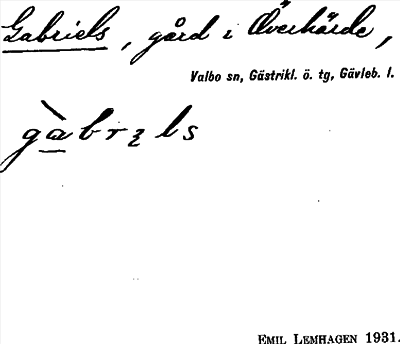 Gabriels, gård i Överhärde,
Valbo sn, Gästrikl. ö. tg, Gävleb. l.
gàbrꞓls
EMIL LEMHAGEN 1931.